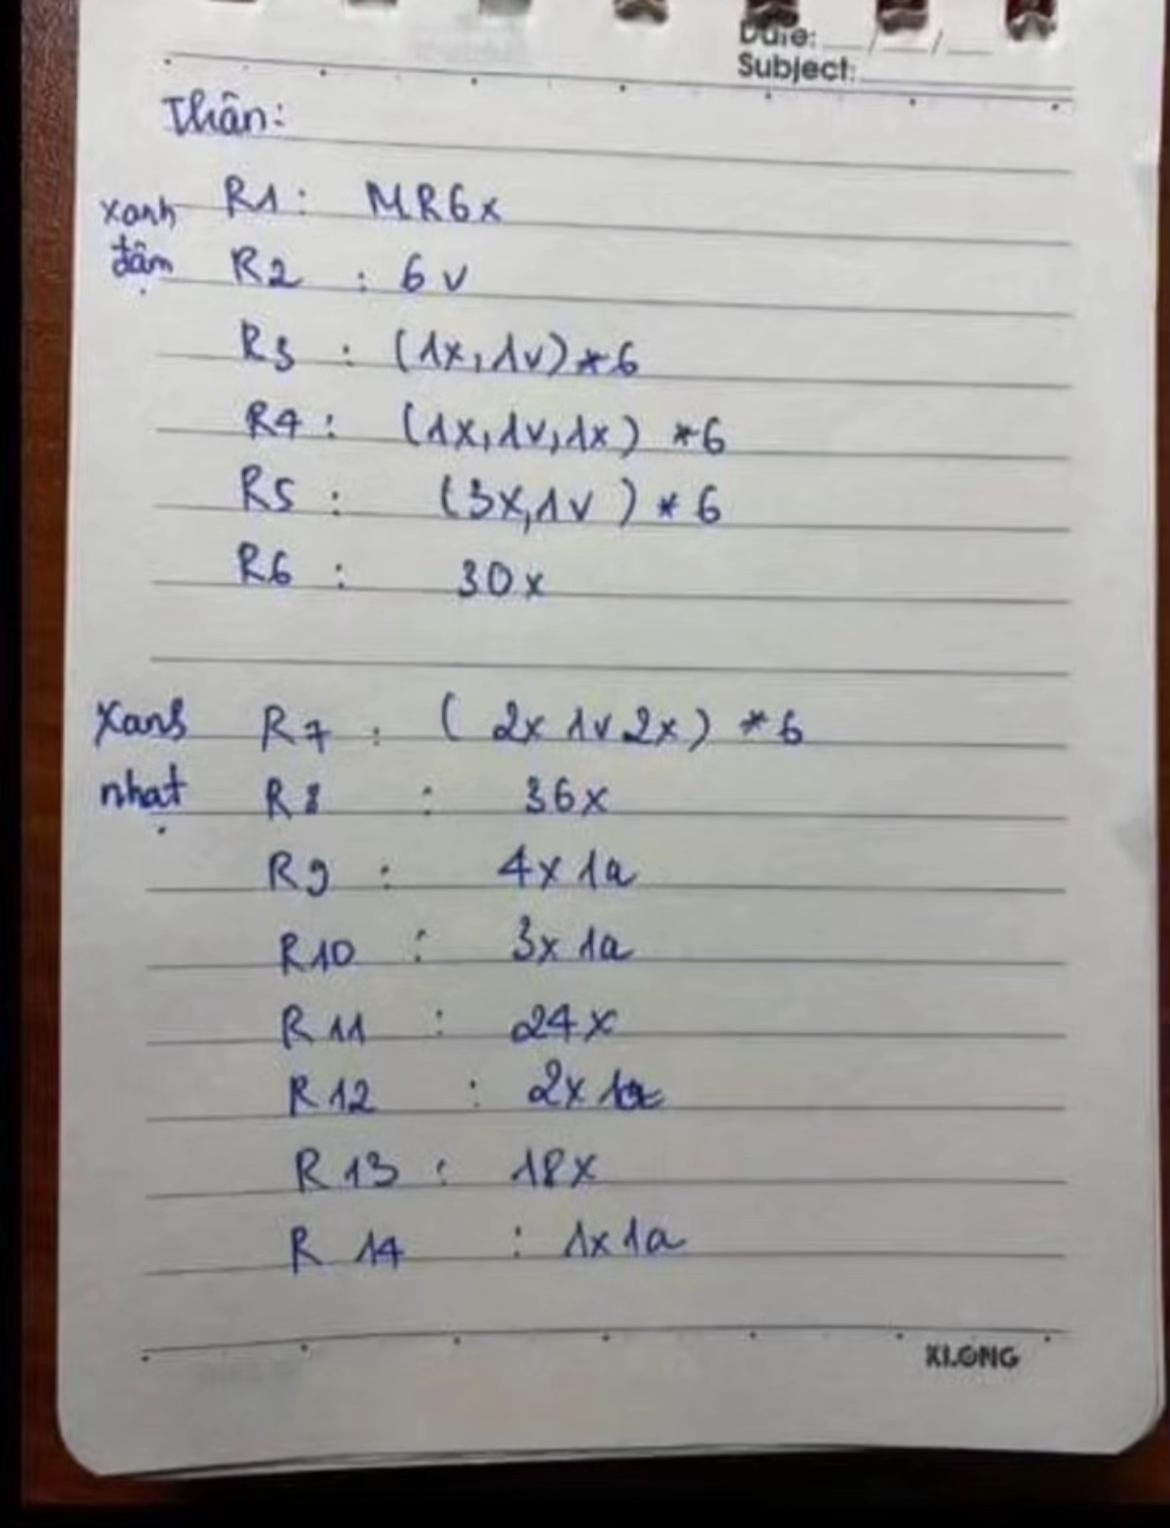 Date: __/__/__
Subject:
Thân:
xanh đậm R1: MR6x
R2 : 6v
R3 : (1x, 1v) * 6
R4 : (1x, 1v, 1x) * 6
R5 : (3x, 1v) * 6
R6 : 30x
Xanh nhạt R7 : ( 2x 1v 2x) * 6
R8 : 36x
R9 : 4x 1a
R10 : 3x 1a
R11 : 24x
R12 : 2x 1a
R13 : 18x
R14 : 1x 1a
KLONG